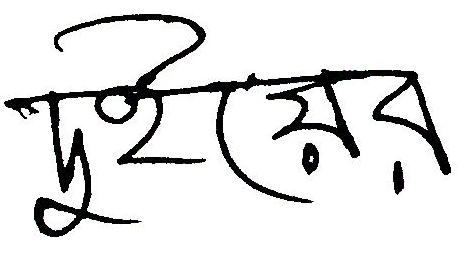 দুইয়ের